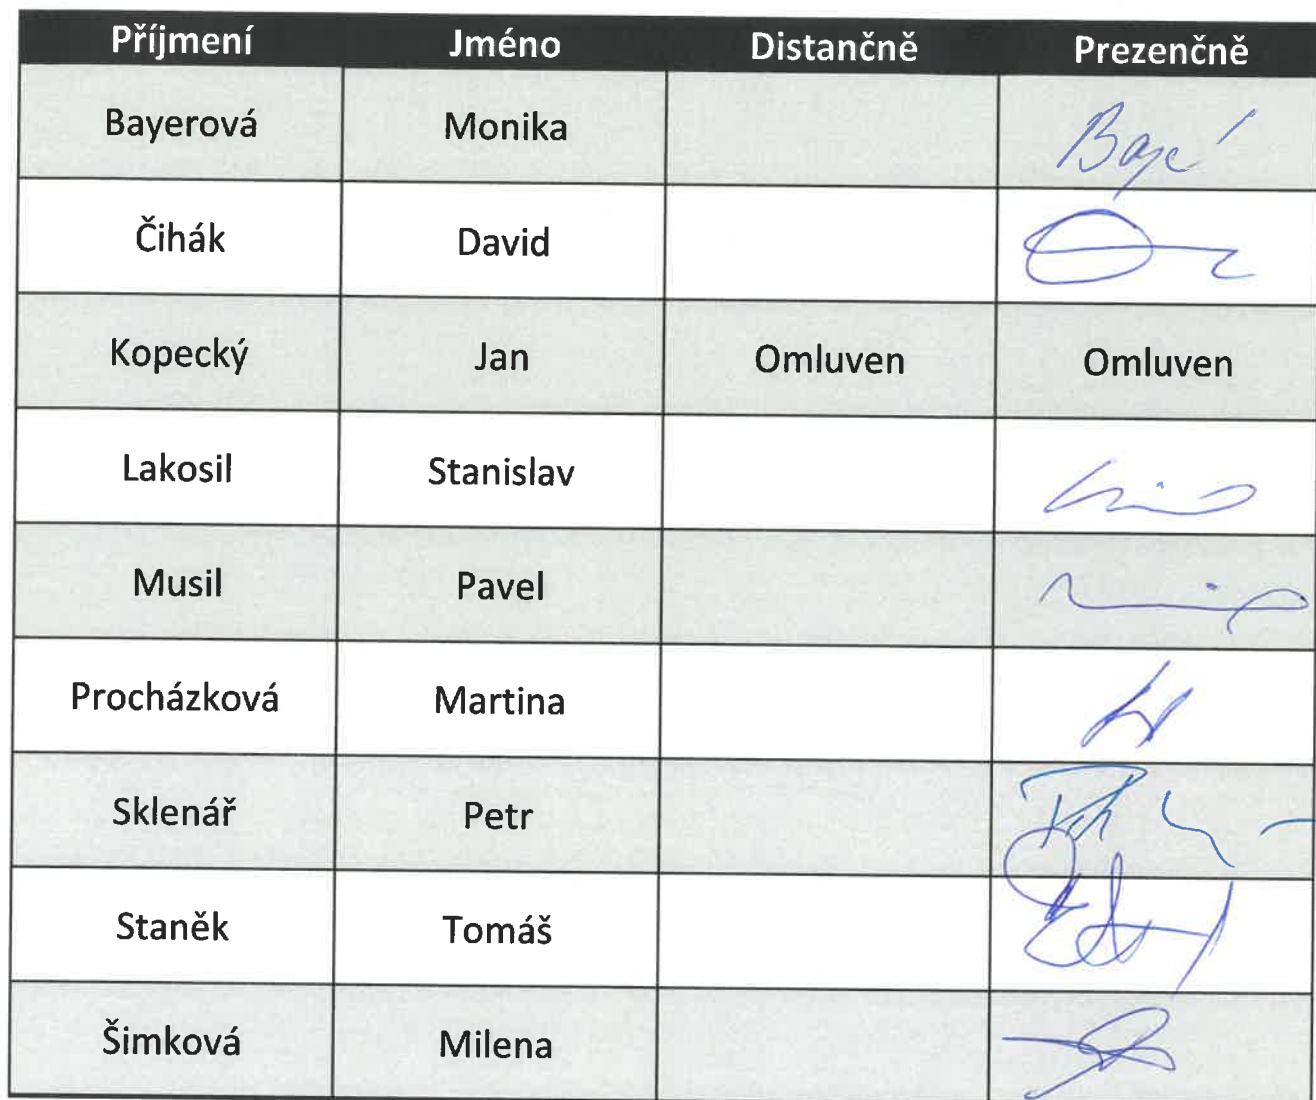 Příjmení Jméno Distančně Prezenčně
Bayerová Monika
Čihák David
Kopecký Jan Omluven Omluven
Lakosil Stanislav
Musil Pavel
Procházková Martina
Sklenář Petr
Staněk Tomáš
Šimková Milena